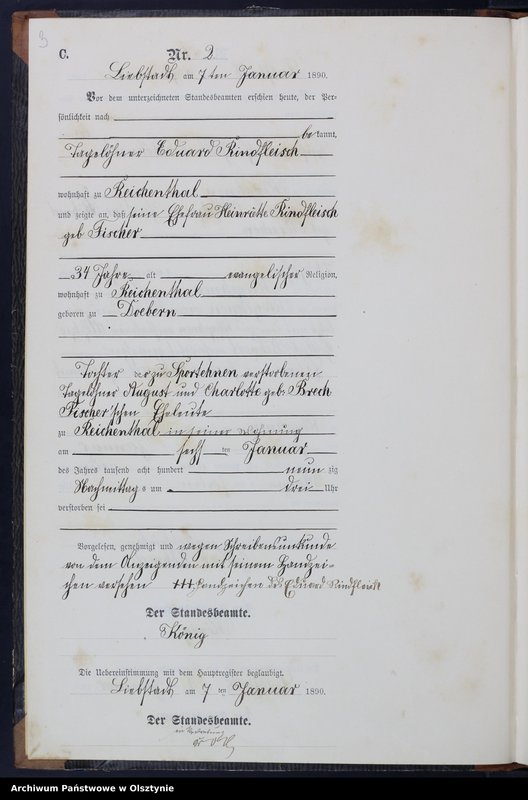 3
C.
Nr. 2
Liebstadt am 7ten Januar 1890.
Vor dem unterzeichneten Standesbeamten erschien heute, der Per-
sönlichkeit nach
bekannt,
Tagelöhner Eduard Rindfleisch
wohnhaft zu Reichenthal
und zeigte an, daß seine Ehefrau Heinriette Rindfleisch
geb Fischer
34 Jahre alt evangelischer Religion,
wohnhaft zu Reichenthal
geboren zu Doebern
Tochter der zu Sportehnen verstorbenen
Tagelöhner August und Charlotte geb. Brech
Fischer'schen Eheleute
zu Reichenthal in seiner Wohnung
am sechsten Januar
des Jahres tausend acht hundert neunzig
Nachmittags um drei Uhr
verstorben sei
Vorgelesen, genehmigt und wegen Schreibensunkunde
von dem Anzeigenden mit seinem Handzei-
chen versehen +++ Handzeichen des Eduard Rindfleisch
Der Standesbeamte.
König
Die Uebereinstimmung mit dem Hauptregister beglaubigt.
Liebstadt am 7ten Januar 1890.
Der Standesbeamte.
Archiwum Państwowe w Olsztynie